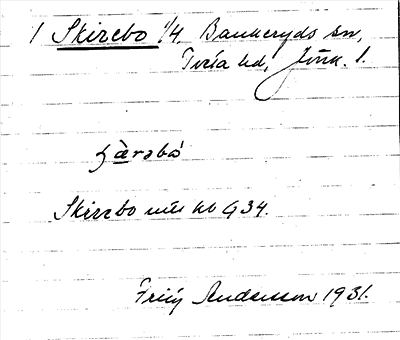 1 Skirebo 1/4, Bankeryds sn,
Tveta hd, Jönk. l.
ʒæ̀rəbó
Skirebo utt. kb G34.
Andersson 1931.